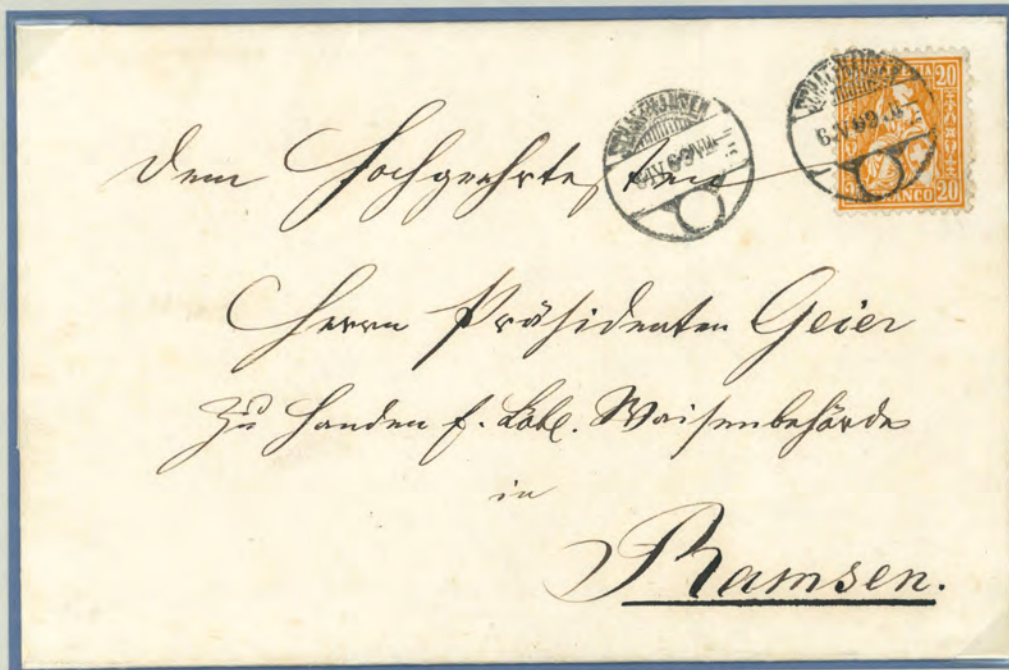 SCHAFFHAUSEN
6.IV.69
SCHAFFHAUSEN
6.IV.69
20
20
FRANCO
Dem Hochgeehrten
Herrn Präsidenten Geier
zu Handen f. Löbl. Waisenbehörde
in
Ramsen.